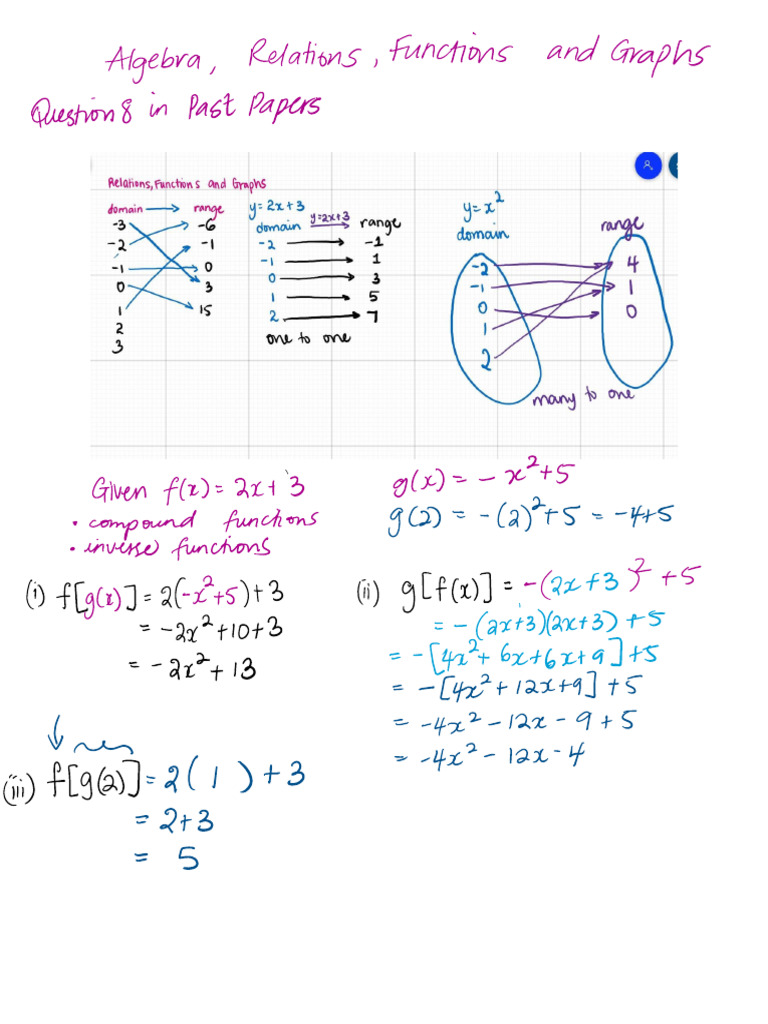 Algebra, Relations, Functions and Graphs
Question 8 in Past Papers
Relations, Functions and Graphs
domain → range
-3 -6
-2 -1
-1 0
0 3
1 15
2
3
y = 2x + 3
domain y=2x+3 range
-2 -1
-1 1
0 3
1 5
2 7
one to one
y = x²
domain range
-2 4
-1 1
0 0
1
2
many to one
Given f(x) = 2x + 3
• compound functions
• inverse functions
g(x) = - x² + 5
g(2) = -(2)² + 5 = -4+5
(i) f[g(x)] = 2(-x²+5) + 3
= -2x² + 10 + 3
= -2x² + 13
(ii) g[f(x)] = -(2x + 3)² + 5
= -(2x+3)(2x+3) + 5
= -[4x² + 6x + 6x + 9] + 5
= -[4x² + 12x + 9] + 5
= -4x² - 12x - 9 + 5
= -4x² - 12x - 4
(iii) f[g(2)] = 2( 1 ) + 3
= 2+3
= 5